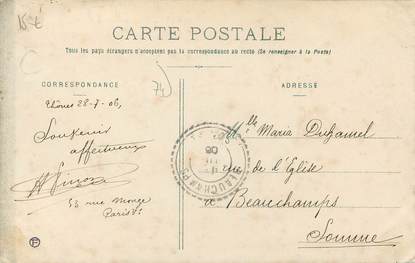 15€
CARTE POSTALE
Tous les pays étrangers n'acceptent pas la correspondance au recto (Se renseigner à la Poste)
CORRESPONDANCE
ADRESSE
74
Thônes 28-7-06,
Souvenir
affectueux
53 rue Monge
Paris Ve
Mlle Maria Duhamel
rue de l'Eglise
à Beauchamps
Somme
BEAUCHAMPS